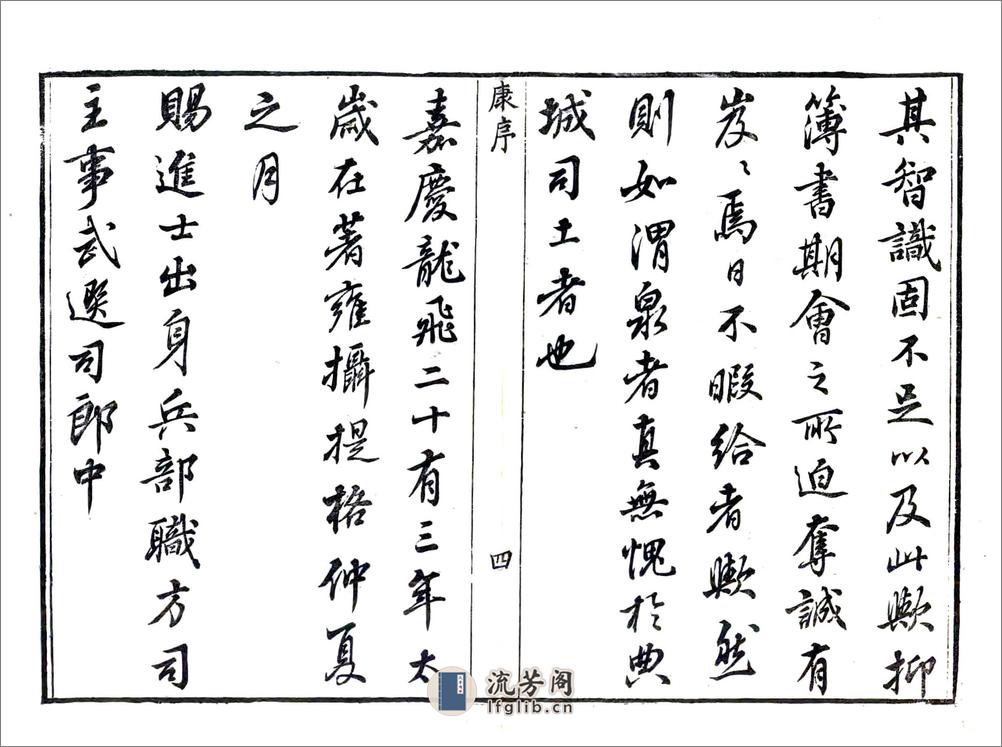 其智識固不足以及此歟抑
簿書期會之所迫奪誠有
岌〻焉日不暇給者歟然
則如渭泉者真無愧於典
城司土者也
康序
四
嘉慶龍飛二十有三年太
歲在著雍攝提格仲夏
之月
賜進士出身兵部職方司
主事武選司郎中
流芳阁
lfglib.cn